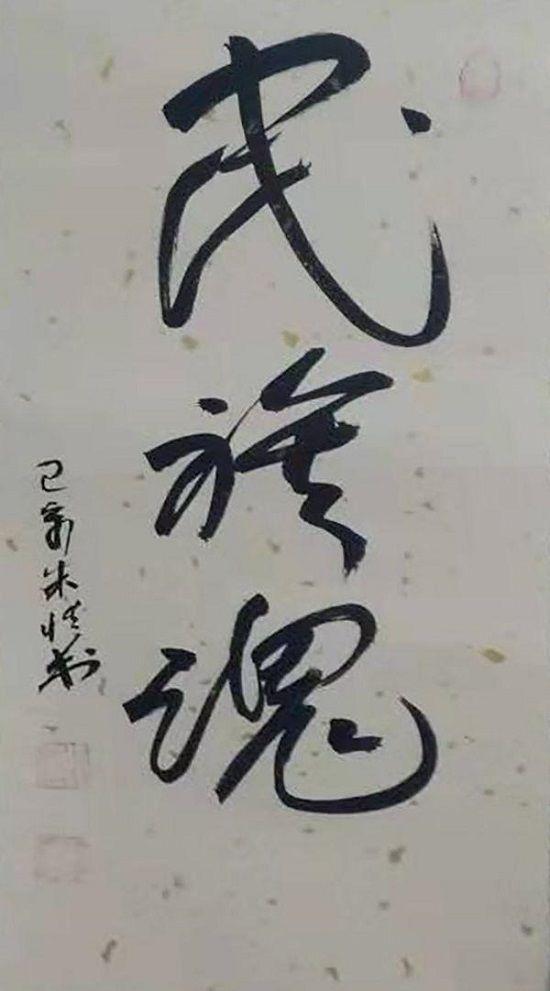 民族魂
己亥朱书